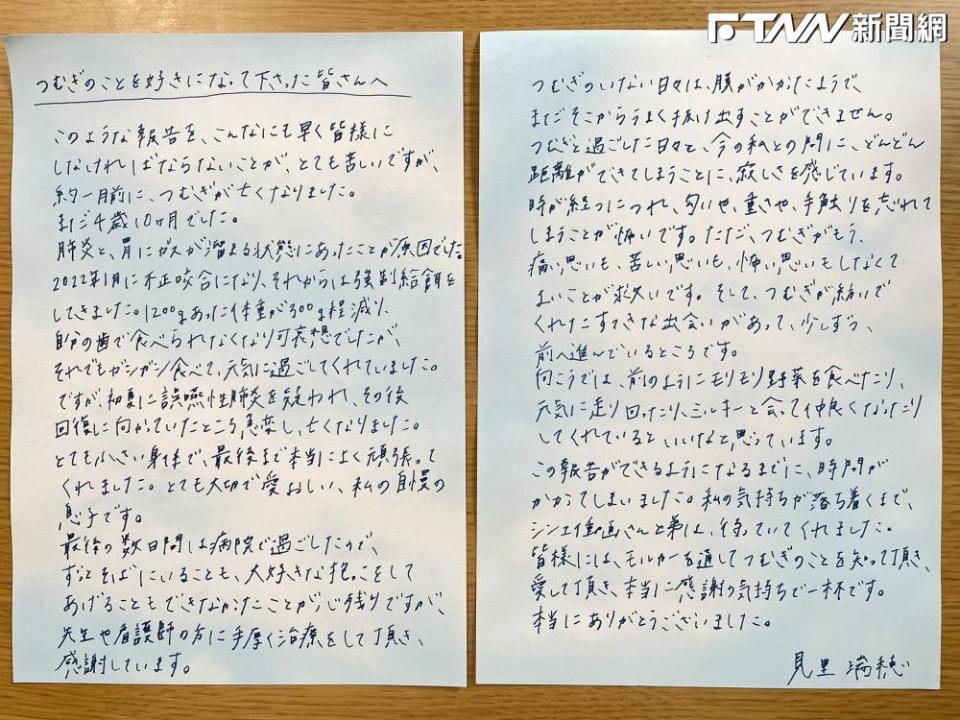 FTNN 新聞網
つむぎのことを好きになって下さった皆さんへ
このような報告を、こんなにも早く皆様に
しなければならないことが、とても苦しいですが、
約一月前に、つむぎが亡くなりました。
まだ4歳10ヶ月でした。
肺炎と、胃にガスが溜まる状態にあったことが原因でした。
2022年1月に不正咬合になり、それからは強制給餌を
してきました。1200gあった体重が300g程減り、
自分の歯で食べられなくなり可哀想でしたが、
それでもガシガシ食べて、元気に過ごしてくれていました。
ですが、初夏に誤嚥性肺炎を疑われ、その後
回復に向かっていたところ急変し、亡くなりました。
とても小さい身体で、最後まで本当によく頑張って
くれました。とても大切で愛おしい、私の自慢の
息子です。
最後の数日間は病院で過ごしたので、
ずっとそばにいることも、大好きな抱っこをして
あげることもできなかったことが心残りですが、
先生や看護師の方に手厚く治療をして頂き、
感謝しています。
つむぎのいない日々は、膜がかかったようで、
まだそこからうまく抜け出すことができません。
つむぎと過ごした日々と、今の私との間に、どんどん
距離ができてしまうことに、寂しさを感じています。
時が経つにつれ、匂いや、重さや、手触りを忘れて
しまうことが怖いです。ただ、つむぎがもう、
痛い思いも、苦しい思いも、怖い思いもしなくて
よいことが救いです。そして、つむぎが紡いで
くれたすてきな出会いがあって、少しずつ、
前へ進んでいるところです。
向こうでは、前のようにモリモリ野菜を食べたり、
元気に走り回ったり、ミルキーと会って仲良くなったり
してくれているといいなと思っています。
この報告ができるようになるまでに、時間が
かかってしまいました。私の気持ちが落ち着くまで、
シンエイ動画さんと弟は、待っていてくれました。
皆様には、モルカーを通してつむぎのことを知って頂き、
愛して頂き、本当に感謝の気持ちで一杯です。
本当にありがとうございました。
見里 瑞穂